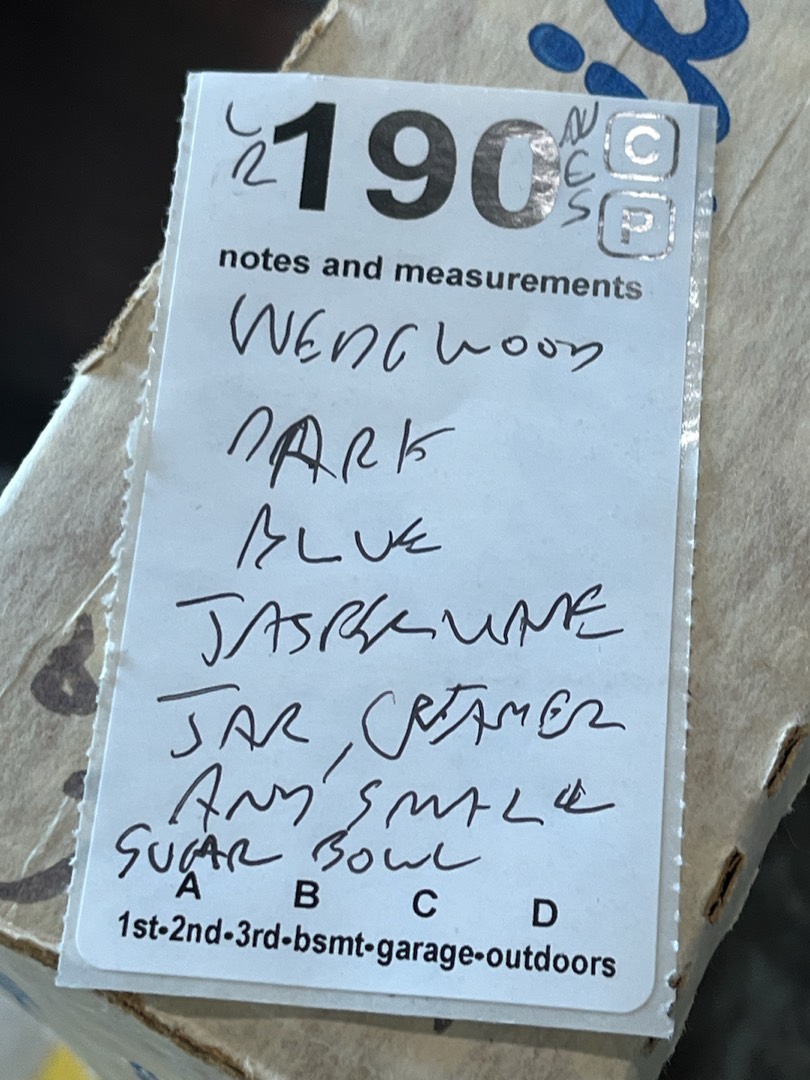 LR 190 NES C
P
notes and measurements
WEDGWOOD
DARK
BLUE
JASPERWARE
JAR, CREAMER
AND SMALL
SUGAR BOWL
A B C D
1st•2nd•3rd•bsmt•garage•outdoors